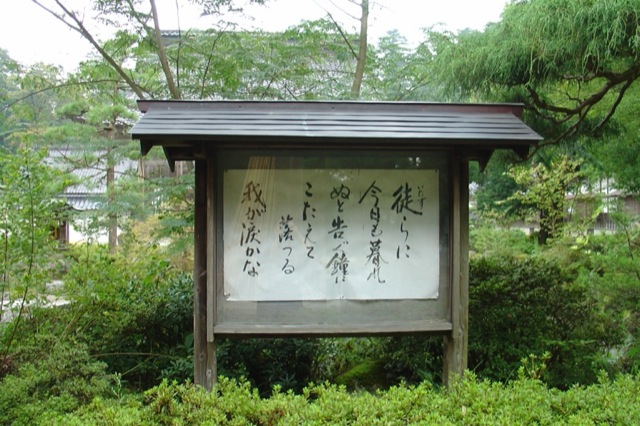 徒らに
いたず
今日も暮れ
ぬと告ぐ鐘に
こたえて
落つる
我が涙かな